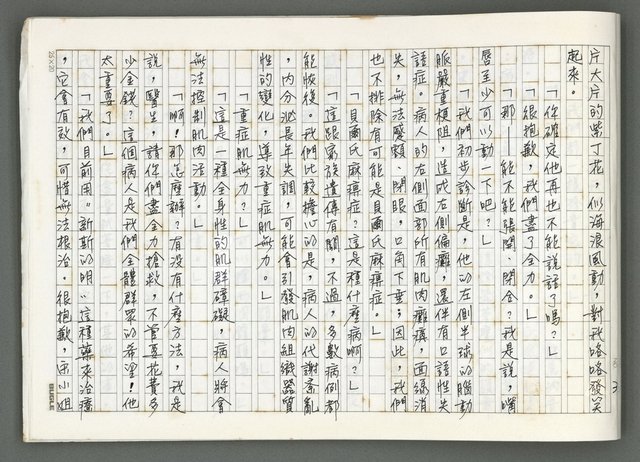 片大片的紫丁花，似海浪風動，對我咯咯發笑
起來。
「你確定他再也不能說話了嗎？」
「很抱歉，我們盡了全力。」
「那——能不能張開、閉合？我是說，嘴
唇至少可以動一下吧？」
「我們初步診斷是，他的左側半球的腦動
脈嚴重梗阻，造成右側偏癱，還伴有口語性失
語症。病人的右側面部所有肌肉癱瘓，面線消
失，無法蹙額、閉眼，口角下垂；因此，我們
也不排除有可能是貝爾氏麻痺症。」
「貝爾氏麻痺症？這是種什麼病啊？」
「這跟家族遺傳有關，不過，多數病例都
能恢復。我們比較擔心的是，病人的代謝紊亂
，內分泌長年失調，可能會引發肌肉組織器質
性的變化，導致重症肌無力。」
「重症肌無力？」
「這是一種全身性的肌群礙礙，病人將會
無法控制肌肉活動。」
「啊！那怎麼辦？有沒有什麼方法，我是
說，醫生，請你們盡全力搶救，不管要花費多
少金錢？這個病人是我們全體群眾的希望！他
太重要了！」
「我們目前用“新斯的明”這種藥來治療
，它會有效，可惜無法根治。很抱歉，宋小姐
25×20
BUGLE
3